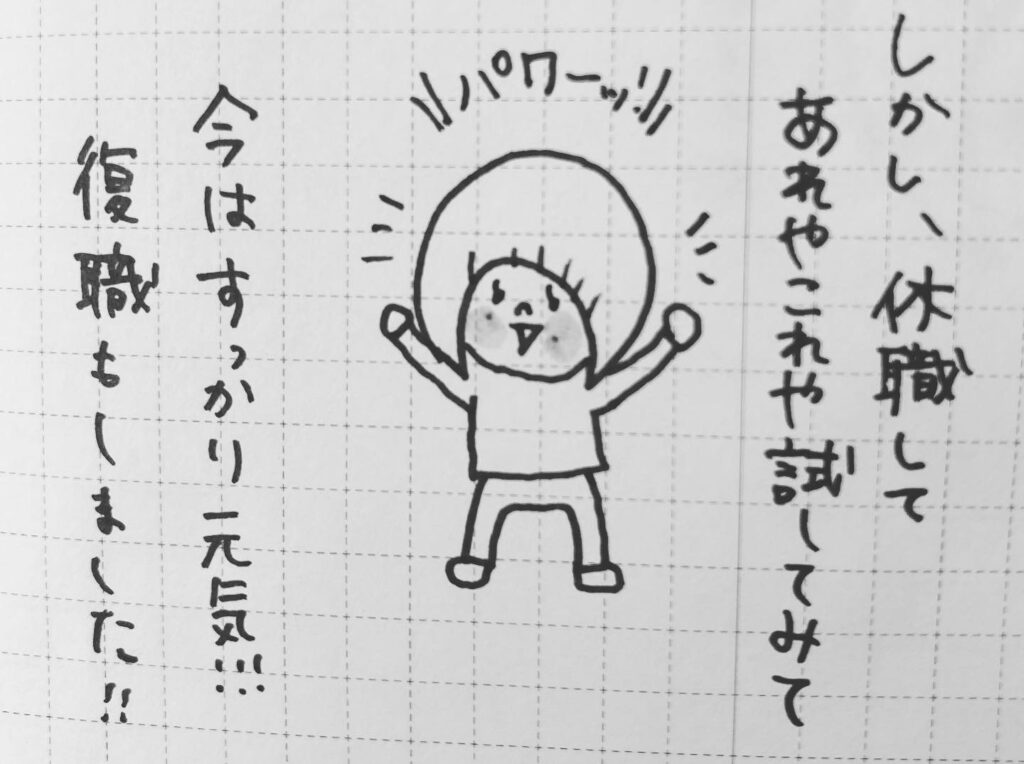 しかし、休職して
あれやこれや試してみて
パワーッ!!
今はすっかり元気!!!
復職もしました!!